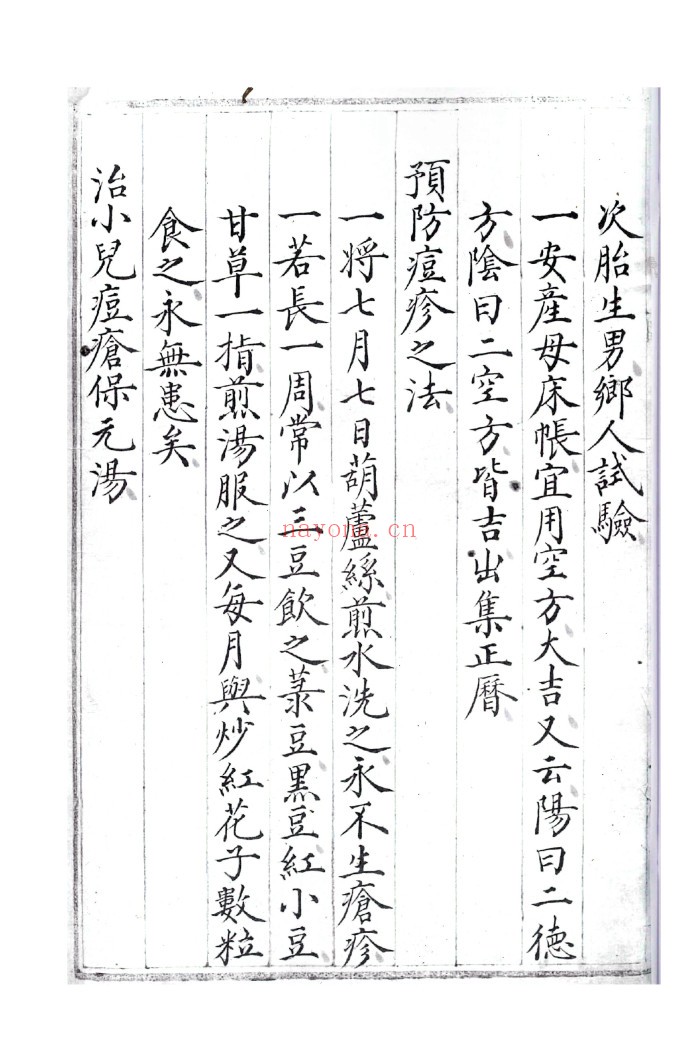 次胎生男鄉人試驗
一安産母床帳宜用空方大吉又云陽曰二德
方陰曰二空方皆吉出集正曆
預防痘疹之法
一將七月七日葫蘆絲煎水洗之永不生瘡疹
一若長一周常以三豆飲之菉豆黒豆紅小豆
甘草一㨗煎湯服之又每月與炒紅花子數粒
食之永無患矣
治小兒痘瘡保元湯
nayong.cn